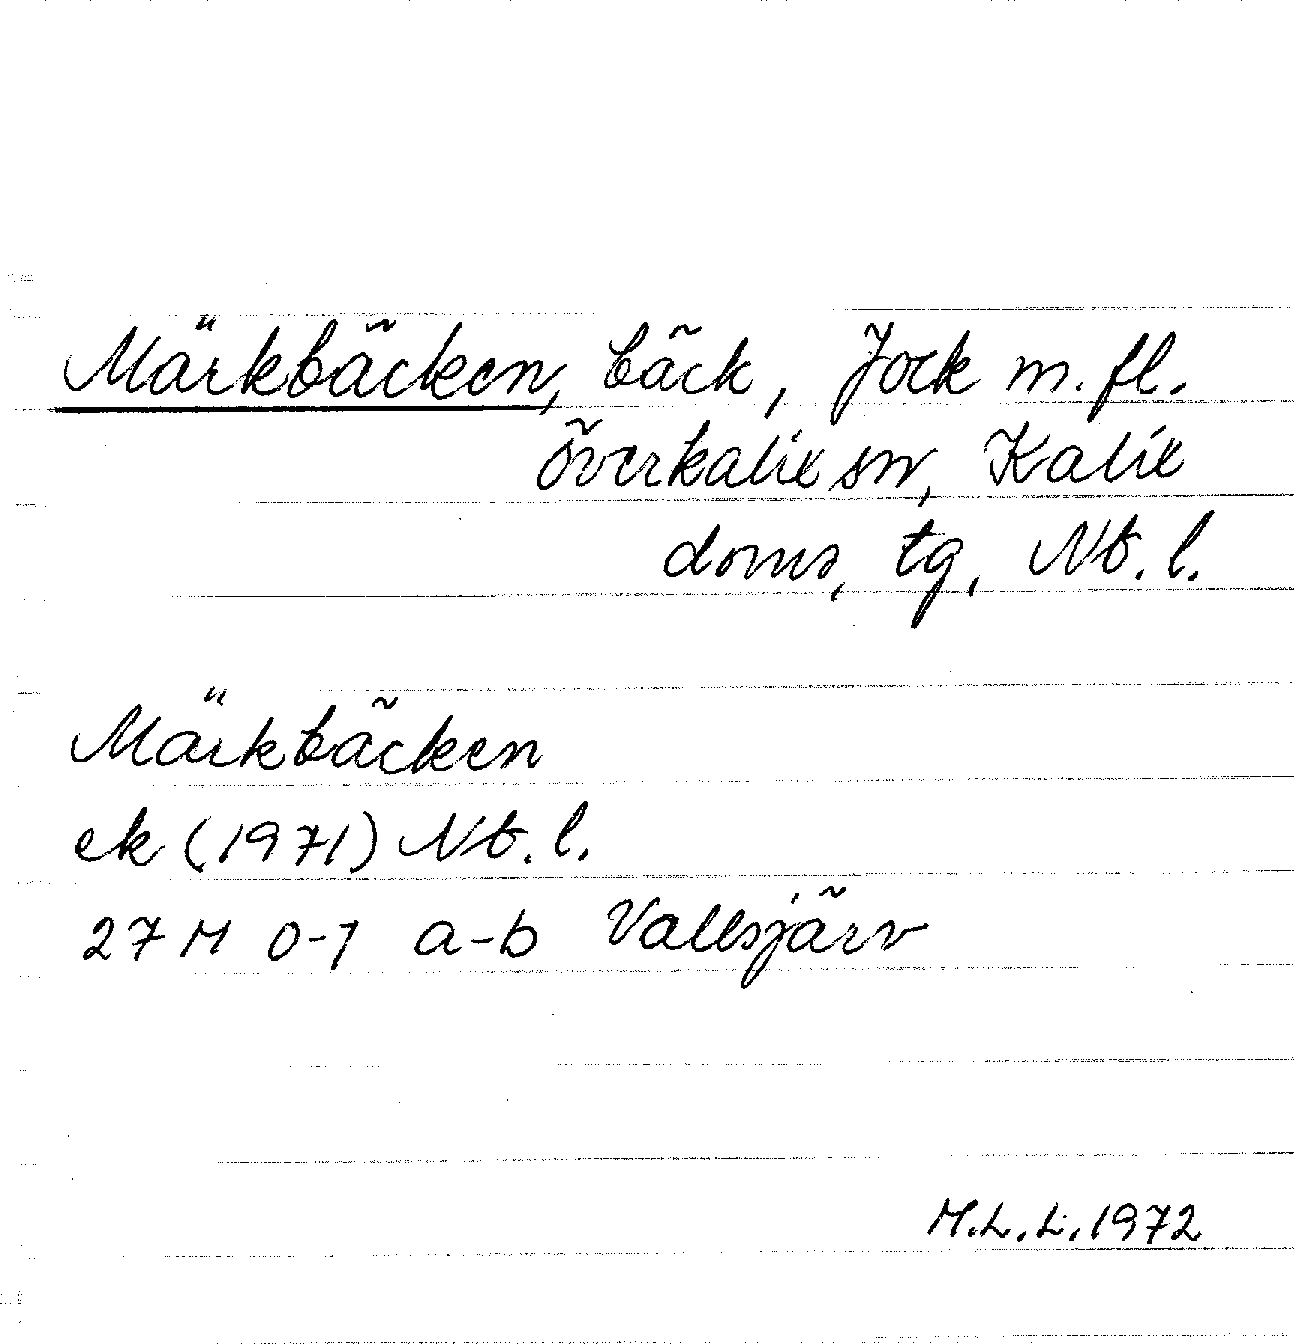 Märkbäcken, bäck, Jock m. fl.
Överkalix sn, Kalix
doms. tg, Nb. l.
Märkbäcken
ek (1971) Nb. l.
27 M 0-1 a-b Vallsjärv
M.L.L. 1972